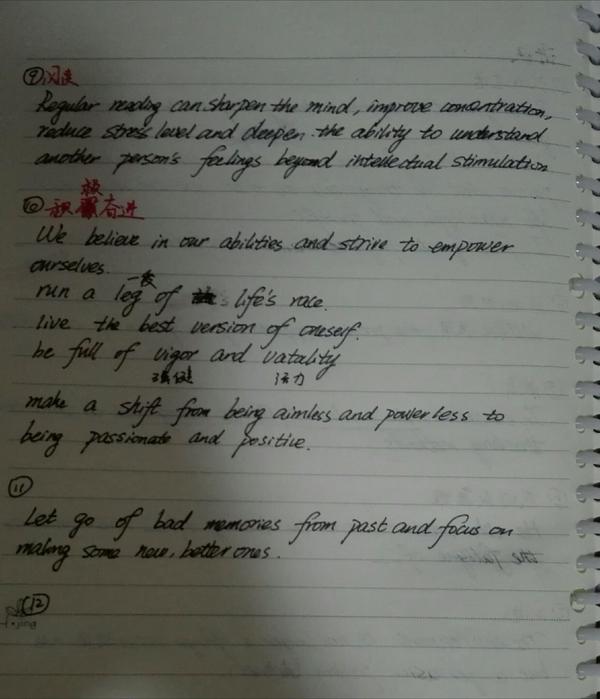 ⑨阅读
Regular reading can sharpen the mind, improve concentration,
reduce stress level and deepen the ability to understand
another person's feelings beyond intellectual stimulation
极
⑩积奋进
We believe in our abilities and strive to empower
ourselves.
一段
run a leg of life's race.
live the best version of oneself.
be full of vigor and vatality
强健 活力
make a shift from being aimless and powerless to
being passionate and positive.
⑪
Let go of bad memories from past and focus on
making some new, better ones.
⑫